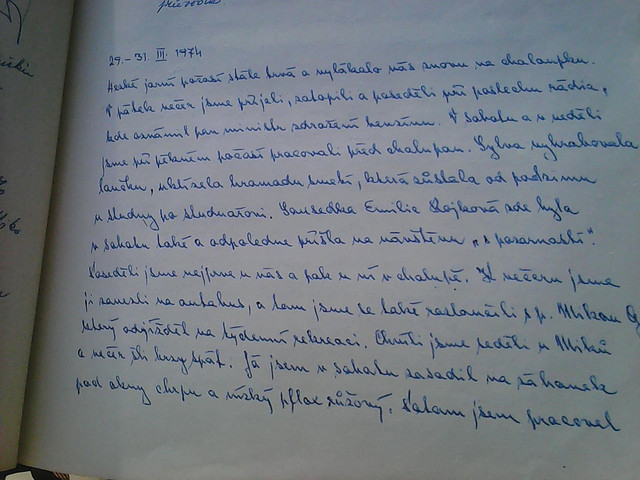 29.-31. III. 1974
Hezké jarní počasí stále trvá a vylákalo nás znovu na chaloupku.
V pátek večer jsme přijeli, zatopili a poseděli při poslechu rádia,
kde oznámil pan ministr zdražení benzinu. V sobotu a v neděli
jsme při pěkném počasí pracovali před chalupou. Sylva vyhrabovala
loučku, uklízela hromadu smetí, která zůstala od podzimu
u studny po studnařoni. Sousedka Emilie Stojková zde byla
v sobotu také a odpoledne přišla na návštěvu „s pozorností".
Poseděli jsme nejprve u nás a pak u ní v chalupě. K večeru jsme
ji zanesli na autobus, a tam jsme se také rozloučili s p. Mikou
který odjížděl na týdenní rekreaci. Chvíli jsme seděli u Miků
a večer šli brzy spát. Já jsem v sobotu zasadil na záhonek
pod okny a nízký phlox růžový. Potom jsem pracoval